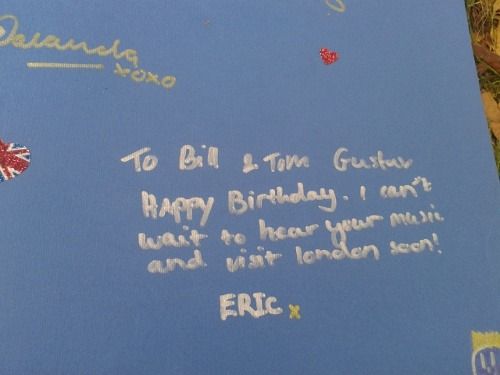 xoxo
To Bill & Tom Gustav
HAPPY Birthday. I can't
wait to hear your music
and visit london soon!
ERIC x